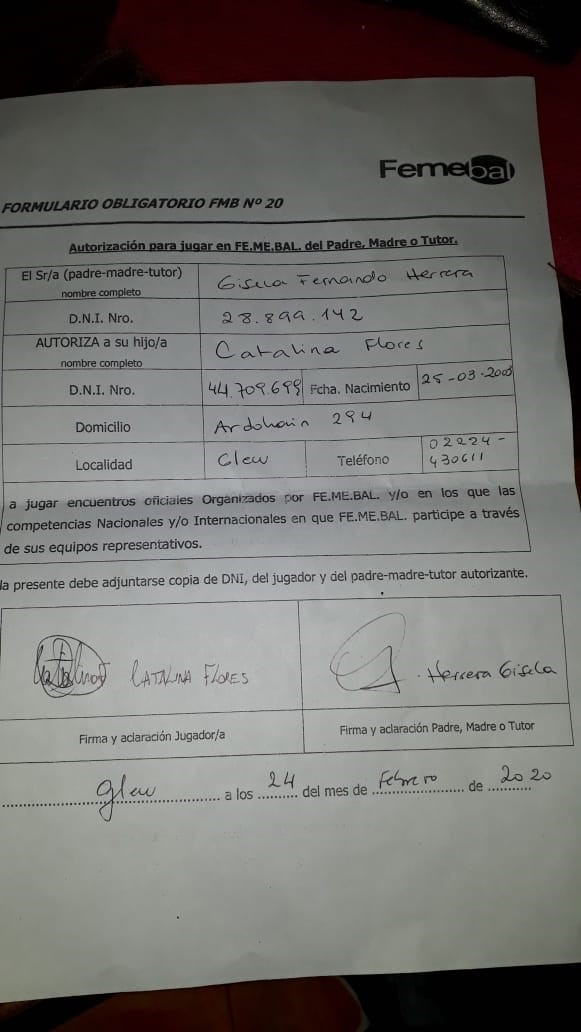 Femebal
FORMULARIO OBLIGATORIO FMB Nº 20
Autorización para jugar en FE.ME.BAL. del Padre, Madre o Tutor.
El Sr/a (padre-madre-tutor) nombre completo Gisela Fernando Herrera
D.N.I. Nro. 28.899.142
AUTORIZA a su hijo/a nombre completo Catalina Flores
D.N.I. Nro. 44.709.699 Fcha. Nacimiento 25-03-2003
Domicilio 294
Localidad Glew Teléfono 02224-430611
a jugar encuentros oficiales Organizados por FE.ME.BAL. y/o en los que las
competencias Nacionales y/o Internacionales en que FE.ME.BAL. participe a través
de sus equipos representativos.
la presente debe adjuntarse copia de DNI, del jugador y del padre-madre-tutor autorizante.
CATALINA FLORES Herrera Gisela
Firma y aclaración Jugador/a Firma y aclaración Padre, Madre o Tutor
Glew a los 24 del mes de Febrero de 2020